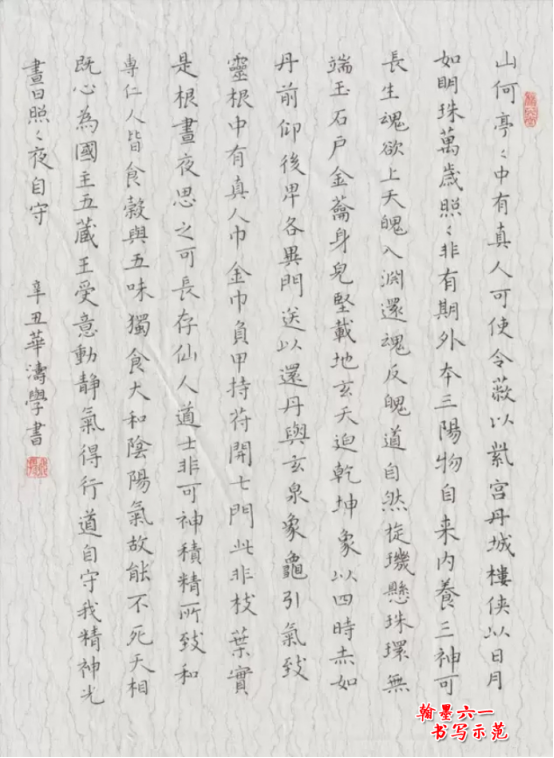 山何亭〻中有真人可使令蔽以紫宫丹城樓侠以日月
如明珠萬歲照〻非有期外本三陽物自来内養三神可
長生魂欲上天魄入淵還魂反魄道自然掟璣懸珠環無
端玉石戶金籥身皃堅載地玄天迫乾坤象以四時赤如
丹前仰後卑各異門送以還丹與玄泉象龜引氣致
靈根中有真人巾金巾負甲持苻開七門此非枝葉實
是根晝夜思之可長存仙人道士非可神積精所致和
專仁人皆食穀與五味獨食大和陰陽氣故能不死天相
既心為國主五蔵王受意動静氣得行道自守我精神光
晝日照〻夜自守
辛丑華濤學書
翰墨六一
书写示范